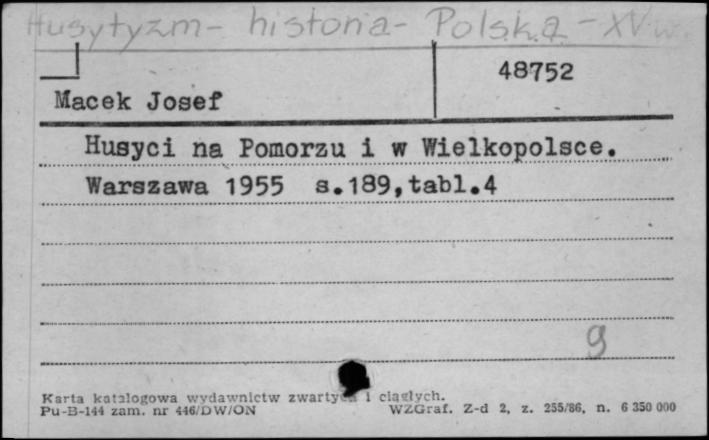 Husytyzm - historia - Polska - XV w.
48752
Macek Josef
Husyci na Pomorzu i w Wielkopolsce.
Warszawa 1955 s.189,tabl.4
9
Karta katalogowa wydawnictw zwartych i ciągłych.
Pu-B-144 zam. nr 446/DW/ON WZGraf. Z-d 2, z. 255/86, n. 6 350 000